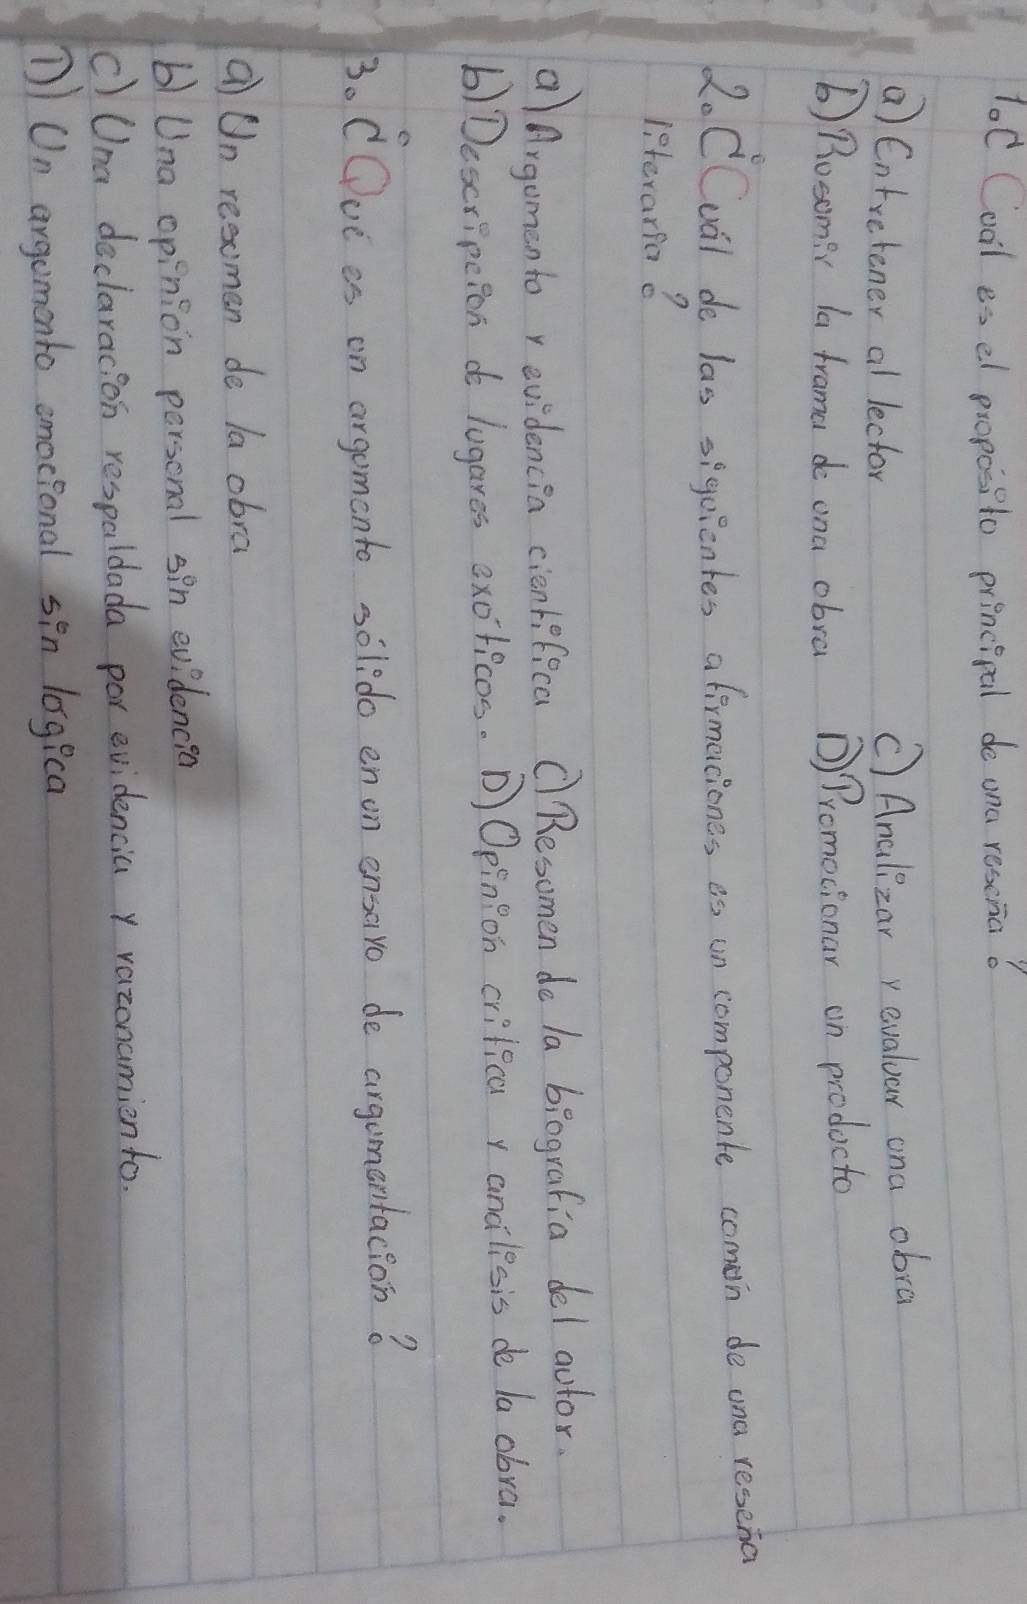 1. ¿Cuál es el propósito principal de una reseña?
a) Entretener al lector C) Analizar y evaluar una obra
b) Rusomir la trama de una obra D) Promocionar un producto
2. ¿Cuál de las siguientes afirmaciones es un componente común de una reseña
literaria?
a) Argumento y evidencia científica C) Resumen de la biografía del autor.
b) Descripción de lugares exóticos. D) Opinión crítica y análisis de la obra.
3. ¿Qué es un argumento sólido en un ensayo de argumentación?
a) Un resumen de la obra
b) Una opinión personal sin evidencia
c) Una declaración respaldada por evidencia y razonamiento.
D) Un argumento emocional sin lógica